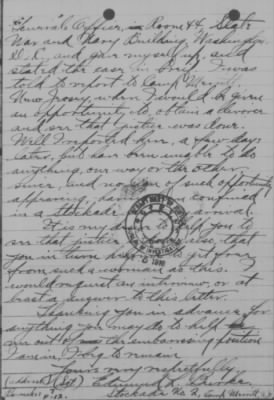 General's Office, in Room 44, State
War and Navy Building, Washington
D.C. and gave myself up, and
stated the case in brief. I was
told to report to Camp Merritt,
New Jersey where I would be given
an opportunity to obtain a divorce
and see that justice was done.
Well I reported here, a few days
later, but have been unable to do
anything, one way or the other
since, and no sign of such opportunity
appearing, have been confined
in a Stockade since arrival.
It is my desire to help you to
see that justice else that
you in turn help me to get free
from such a woman as this.
would request an interview, or at
least a answer to this letter.
Thanking you in advance for
anything you may do to help
me out of the embarrassing position
I am in, I beg to remain
Yours very respectfully,
(address) (Sgt)
Stockade No 2, Camp Merritt N.J.